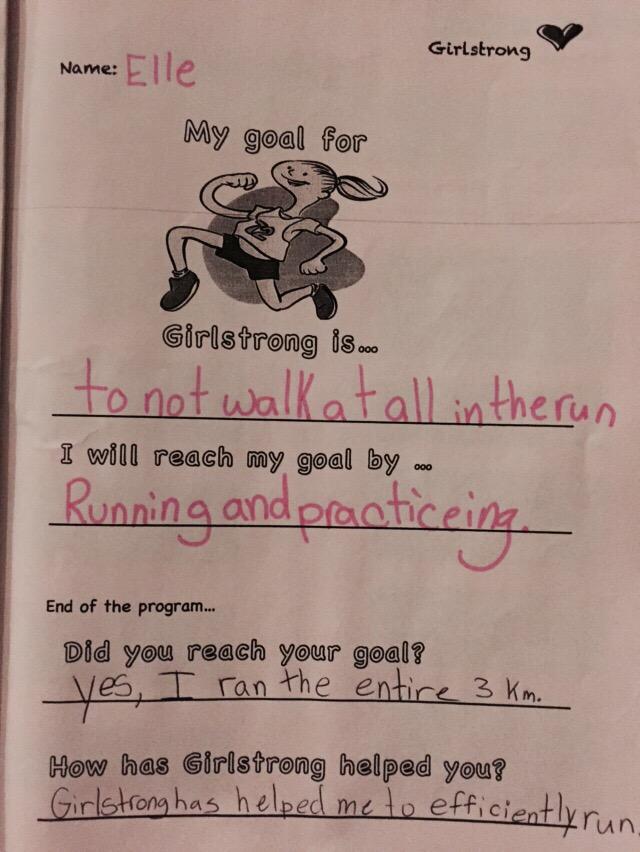 Girlstrong
Name: Elle
My goal for
12
Girlstrong is...
to not walk at all in the run
I will reach my goal by ...
Running and practiceing.
End of the program...
Did you reach your goal?
yes, I ran the entire 3 km.
How has Girlstrong helped you?
Girlstrong has helped me to efficiently run.